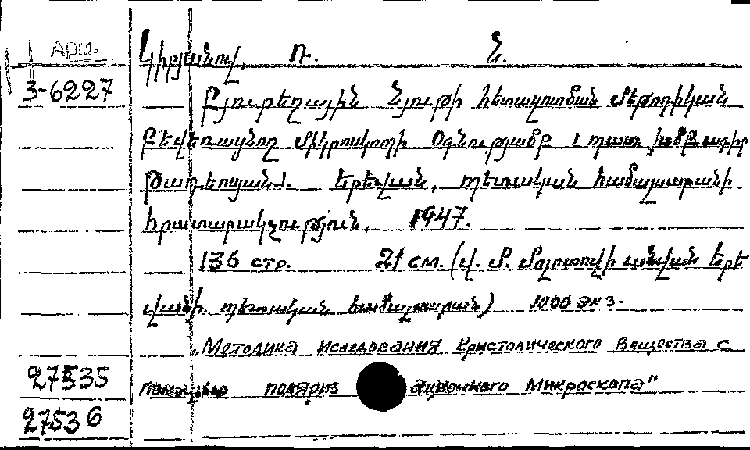 Арм.
3-6227
Կիրյանով, Ռ. Ն.
Բյուրեղային նյութի հետազոտման մեթոդիկան
բևեռացնող միկրոսկոպի օգնությամբ
Երևան, պետական համալսարանի
հրատարակչություն, 1947.
136 стр. 21 см. (Վ. Մ. Մոլոտովի անվան Երև
վանի պետական համալսարան) 1000 экз.
„Методика иследования кристолического вещества с
27535
помощью поляриз ационного микроскопа"
27536